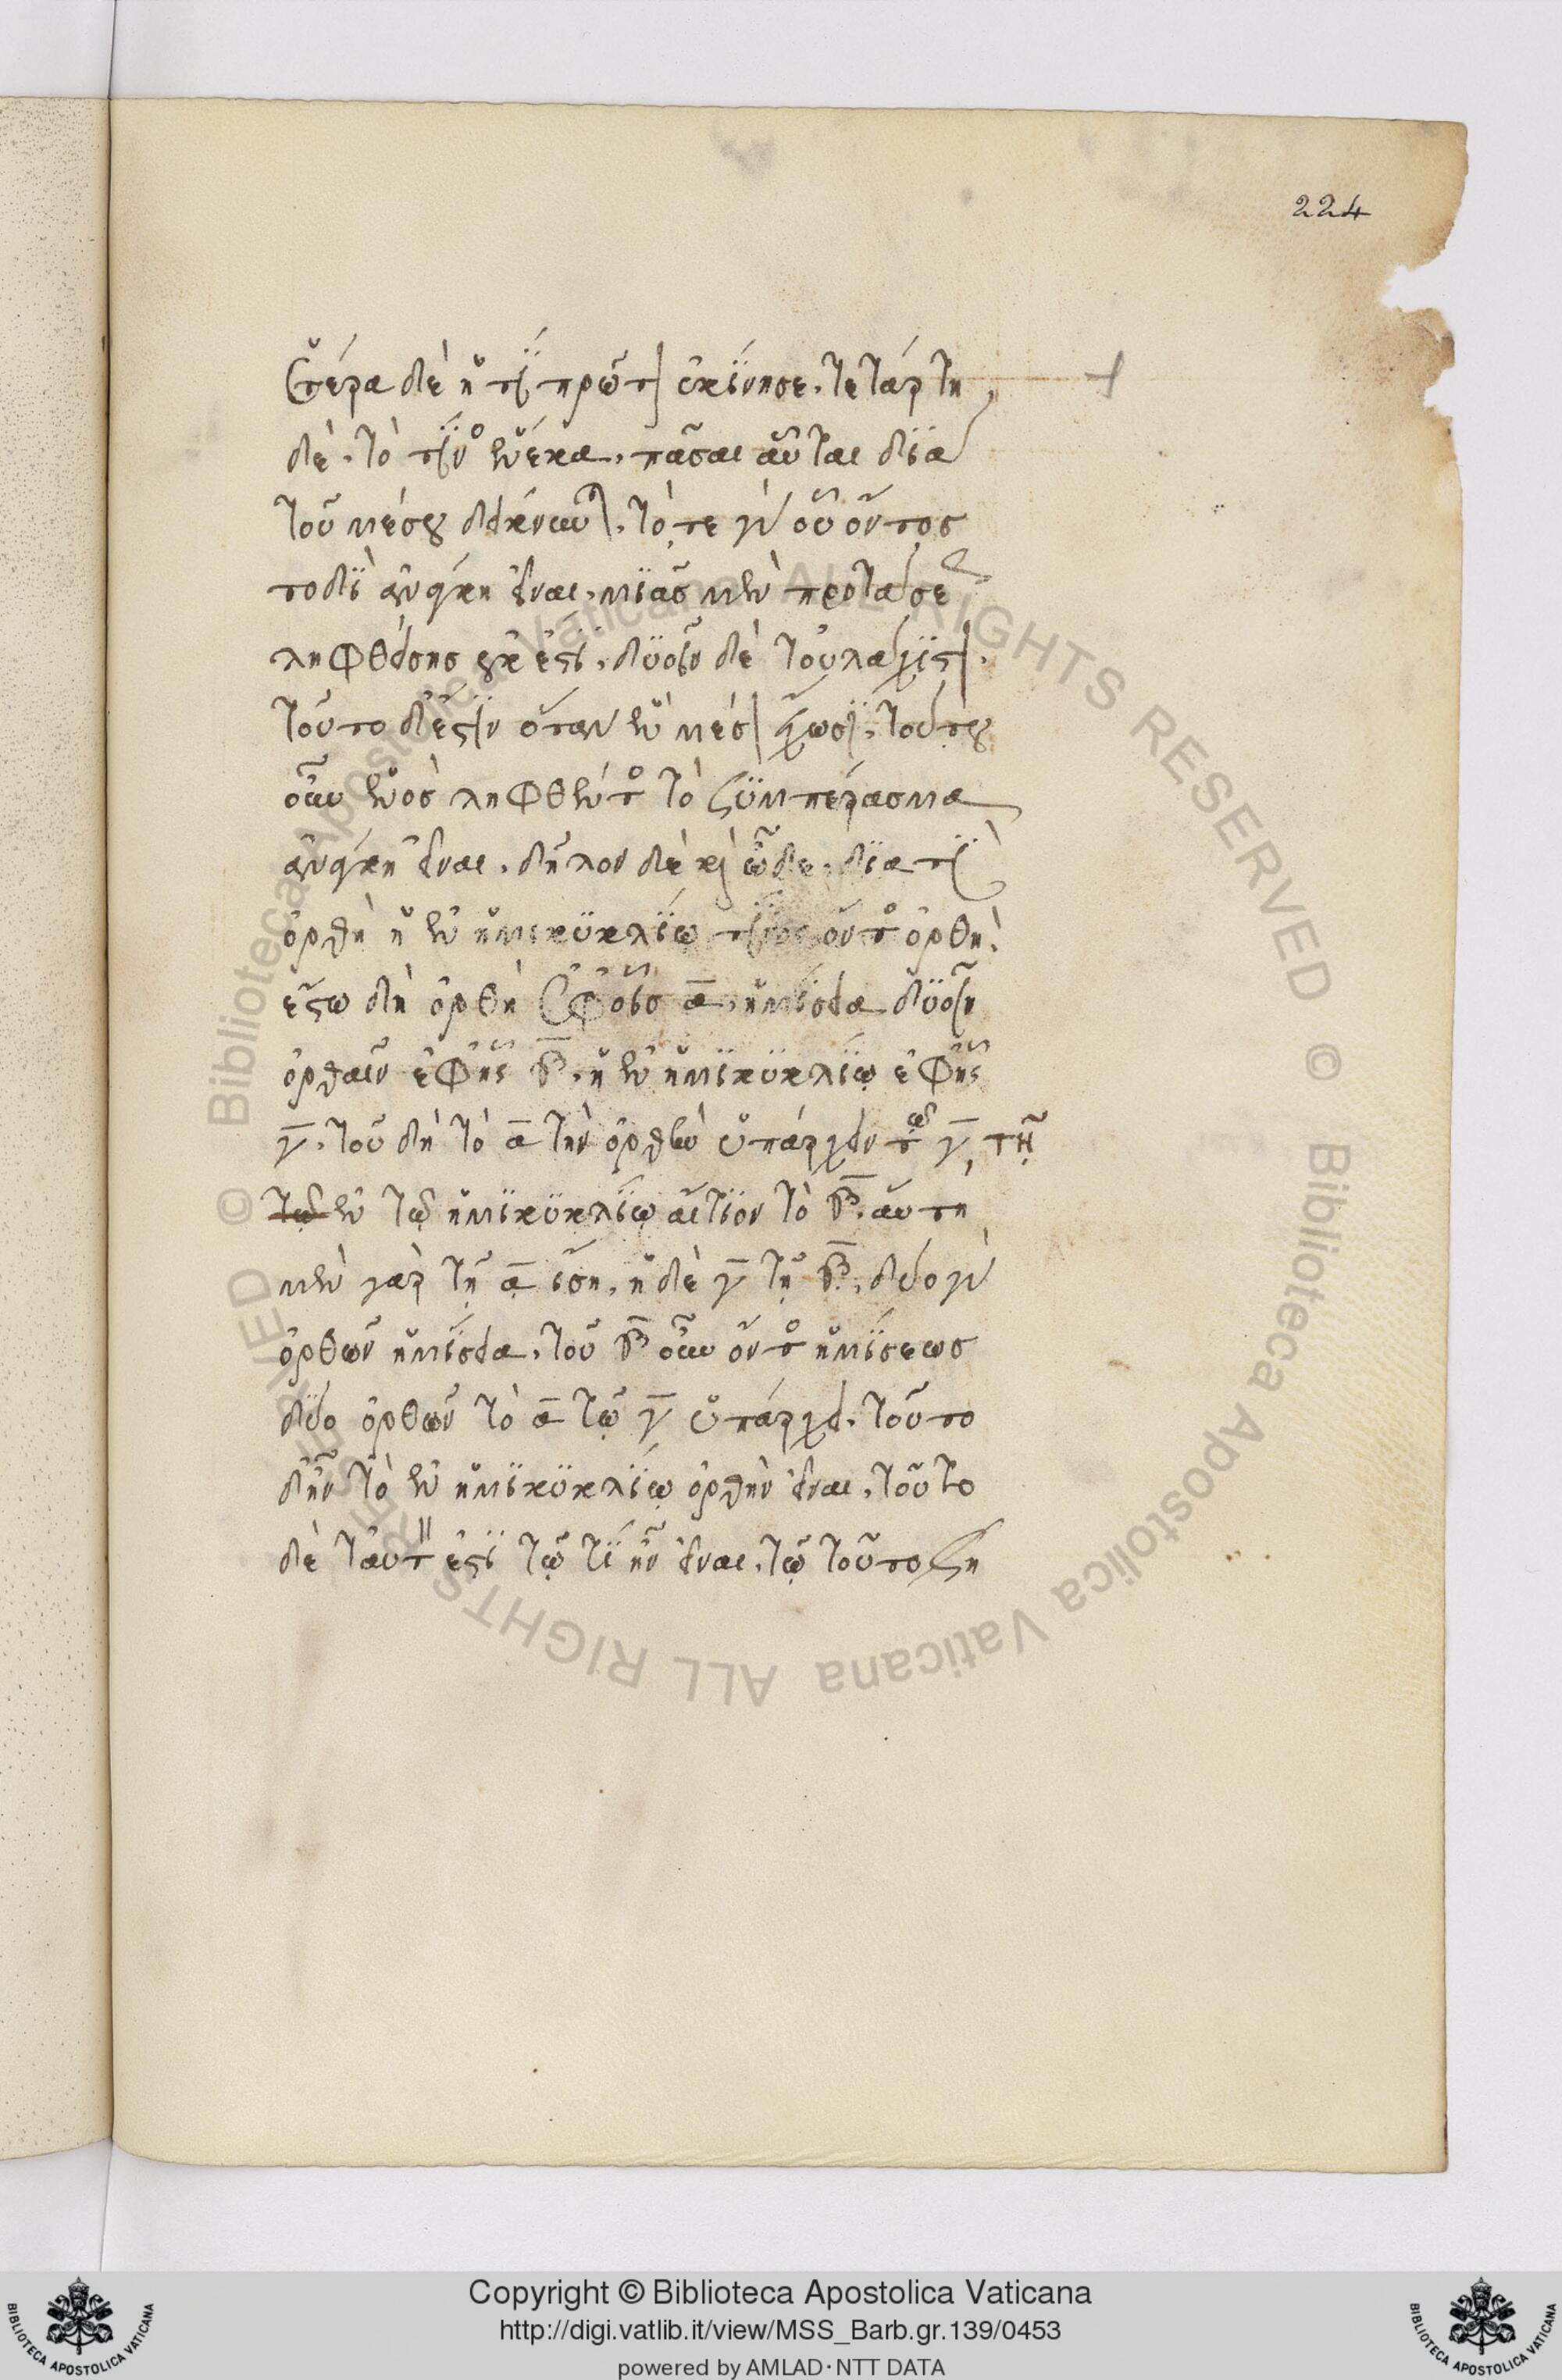 224
ἑτέρα δὲ ἡ τί πρῶτον ἐκίνησε. τετάρτη
δὲ. τὸ τίνος ἕνεκα. πᾶσαι αὗται διὰ
τοῦ μέσου δείκνυνται. τό τε γὰρ οὗ ὄντος
τοδὶ ἀνάγκη εἶναι. μιᾶς μὲν προτάσεως
ληφθείσης οὐκ ἔστι. δυοῖν δὲ τοὐλάχιστον.
τοῦτο δ' ἐστὶν ὅταν ἓν μέσον ἔχωσι. τούτου
οὖν ἑνὸς ληφθέντος τὸ συμπέρασμα
ἀνάγκη εἶναι. δῆλον δὲ καὶ ὧδε. διὰ τί
ὀρθὴ ἡ ἐν ἡμικυκλίω τίνος ὄντος ὀρθή.
ἔστω δὴ ὀρθὴ ἐφ' οἷς α. ἡμίσεια δυοῖν
ὀρθαῖν ἐφ' ἧς β. ἡ ἐν ἡμικυκλίῳ ἐφ' ἧς
γ. τοῦ δὴ τὸ α τὴν ὀρθὴν ὑπάρχειν τῶ γ, τῆ
τῷ ἐν τῷ ἡμικυκλίῳ αἴτιον τὸ β. αὕτη
μὲν γὰρ τῇ α ἴση. ἡ δὲ γ τῇ β. δύο γὰρ
ὀρθῶν ἡμίσεια. τοῦ β οὖν ὄντος ἡμίσεως
δύο ὀρθῶν τὸ α τῷ γ ὑπάρχει. τοῦτο
δ' ἦν τὸ ἐν ἡμικυκλίῳ ὀρθὴν εἶναι. τοῦτο
δὲ ταὐτόν ἐστι τῷ τί ἦν εἶναι. τῷ τοῦτο ση
Copyright © Biblioteca Apostolica Vaticana
http://digi.vatlib.it/view/MSS_Barb.gr.139/0453
powered by AMLAD·NTT DATA
BIBLIOTECA APOSTOLICA VATICANA
BIBLIOTECA APOSTOLICA VATICANA
© Biblioteca Apostolica Vaticana ALL RIGHTS RESERVED © Biblioteca Apostolica Vaticana ALL RIGHTS RESERVED